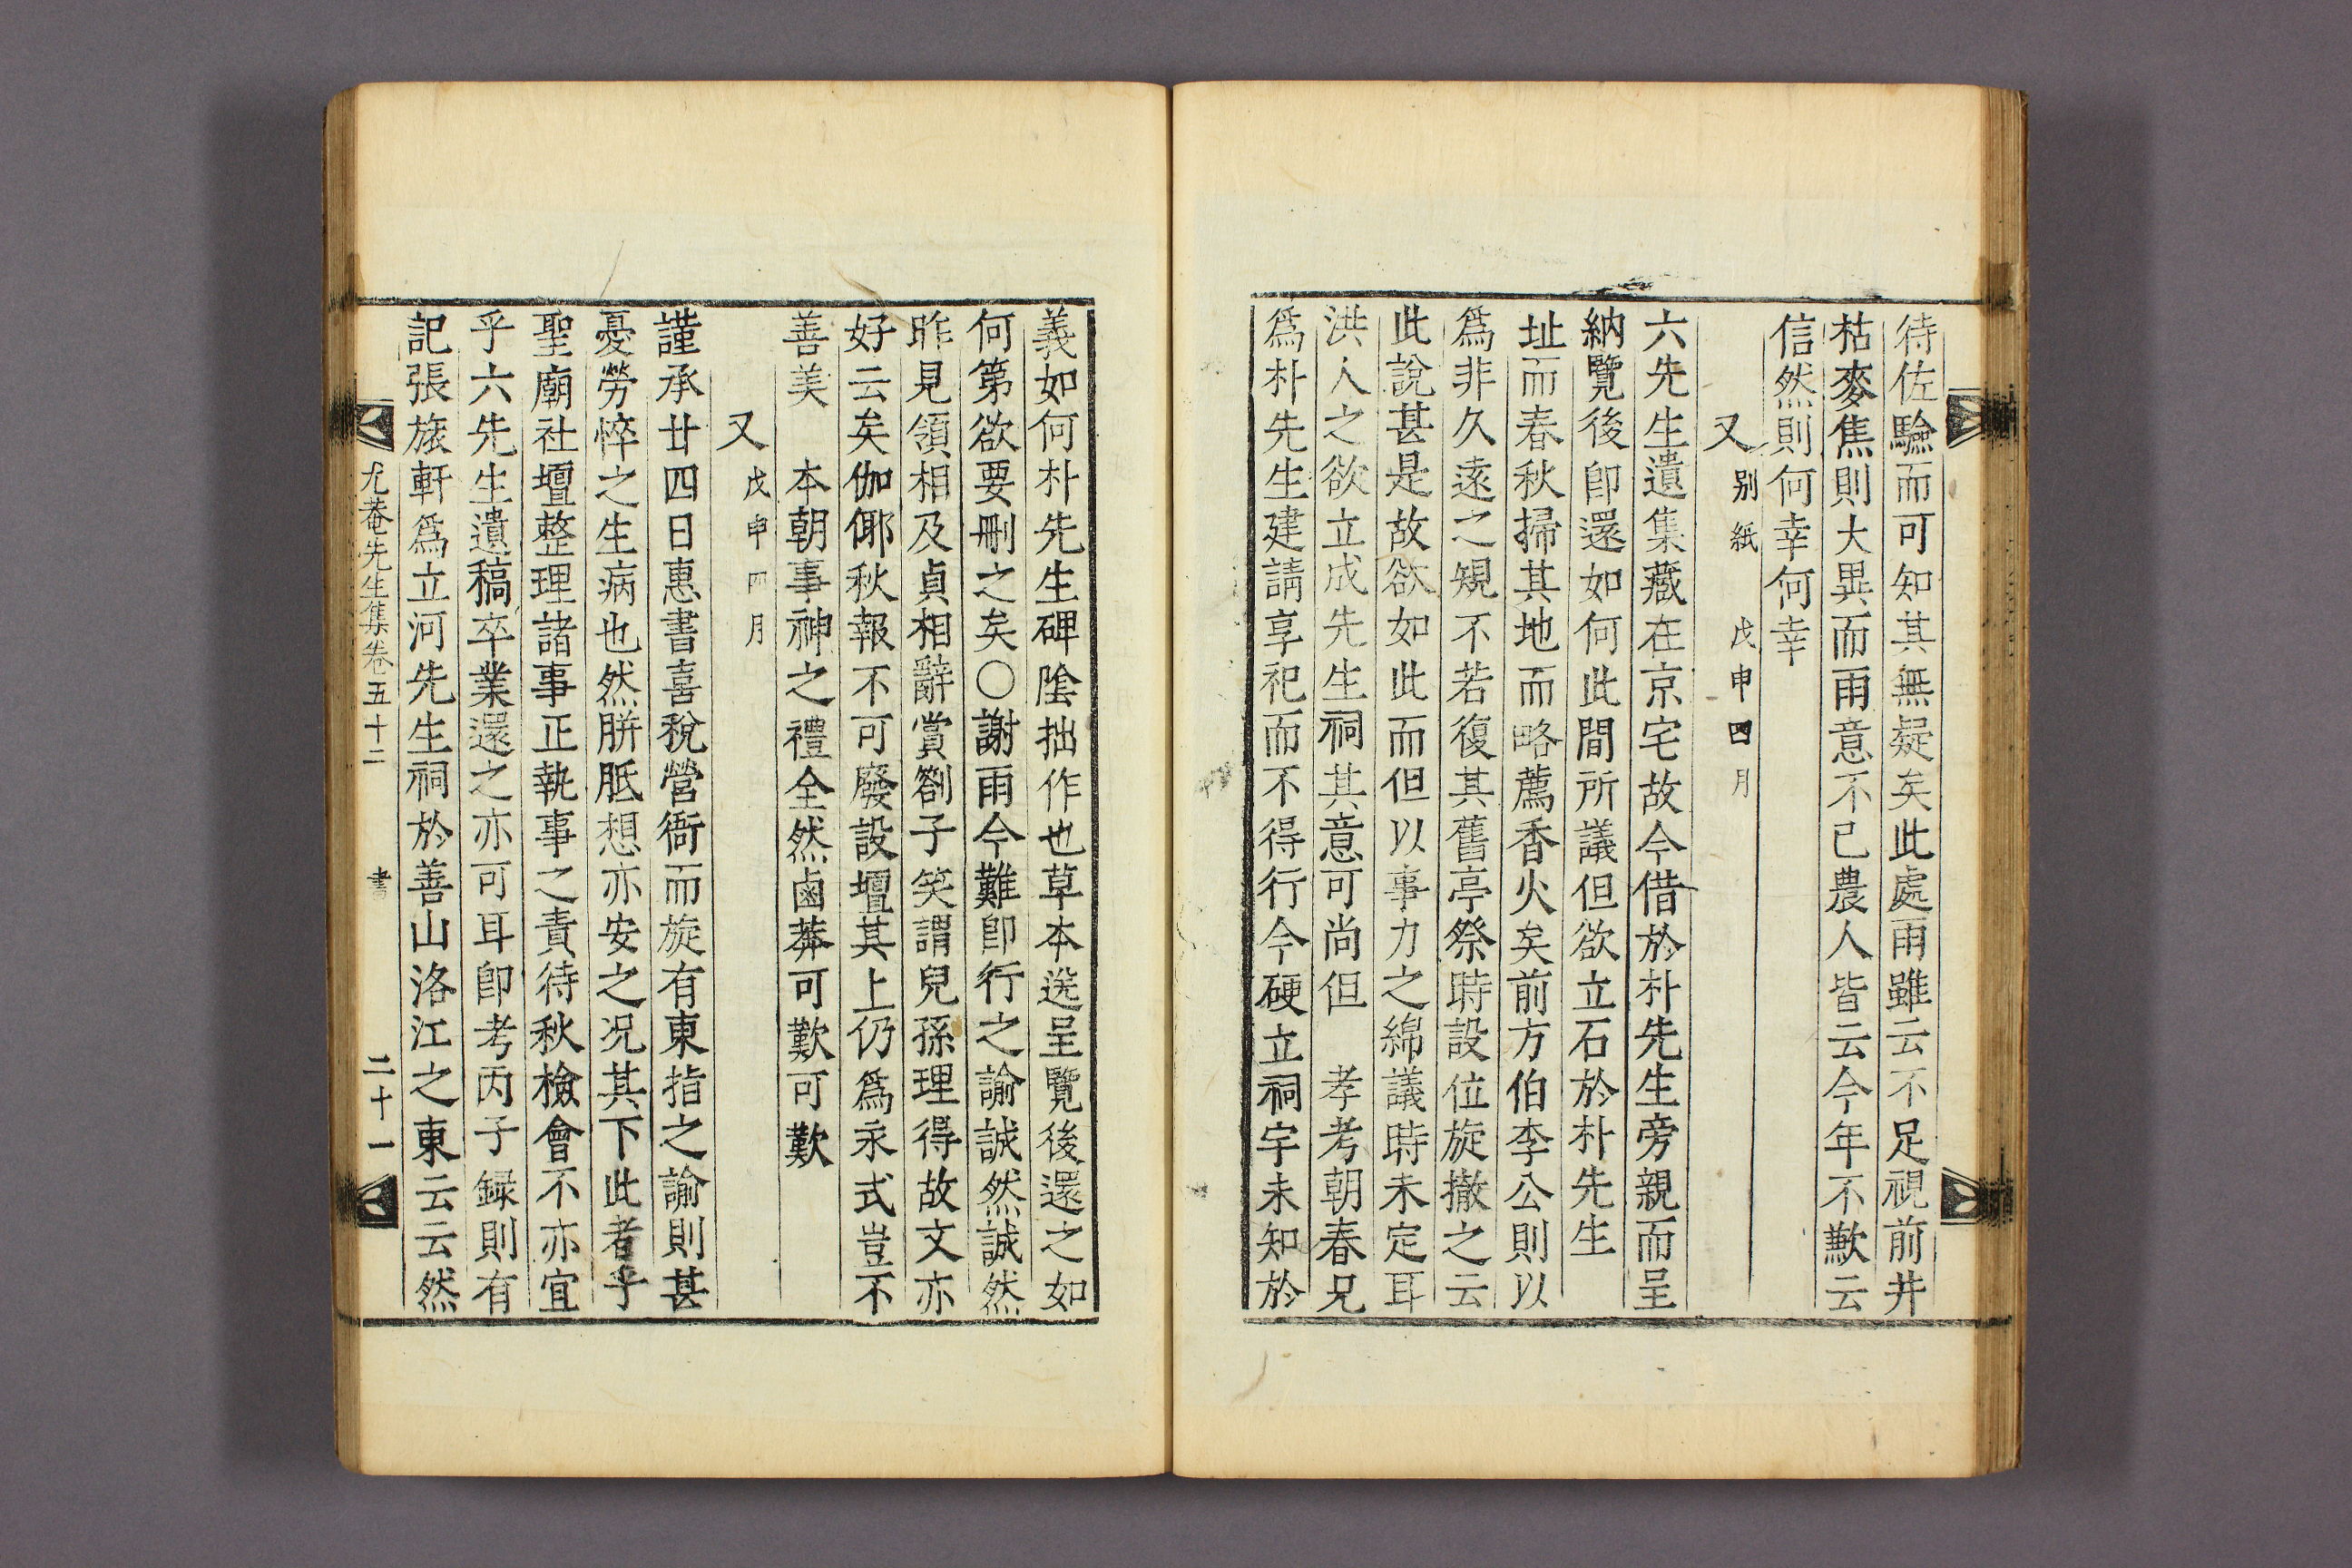 待佐驗而可知其無疑矣此處雨雖云不足視前井
枯麥焦則大異而雨意不已農人皆云今年不歉云
信然則何幸何幸
又 別紙 戊申四月
六先生遺集藏在京宅故今借於朴先生旁親而呈
納覽後卽還如何此間所議但欲立石於朴先生
址而春秋掃其地而略薦香火矣前方伯李公則以
爲非久遠之規不若復其舊亭祭時設位旋撤之云
此說甚是故欲如此而但以事力之綿議時未定耳
洪人之欲立成先生祠其意可尚但 孝考朝春兄
爲朴先生建請享祀而不得行今硬立祠宇未知於
義如何朴先生碑陰拙作也草本送呈覽後還之如
何第欲要刪之矣○謝雨今難卽行之諭誠然誠然
昨見領相及貞相辭賞劄子笑謂兒孫理得故文亦
好云矣伽倻秋報不可廢設壇其上仍爲永式豈不
善美 本朝事神之禮全然鹵莽可歎可歎
又 戊申四月
謹承廿四日惠書喜稅營衙而旋有東指之諭則甚
憂勞悴之生病也然胼胝想亦安之况其下此者乎
聖廟社壇整理諸事正執事之責待秋檢會不亦宜
乎六先生遺稿卒業還之亦可耳卽考丙子録則有
記張旅軒爲立河先生祠於善山洛江之東云云然
尤菴先生集卷五十二 書 二十一